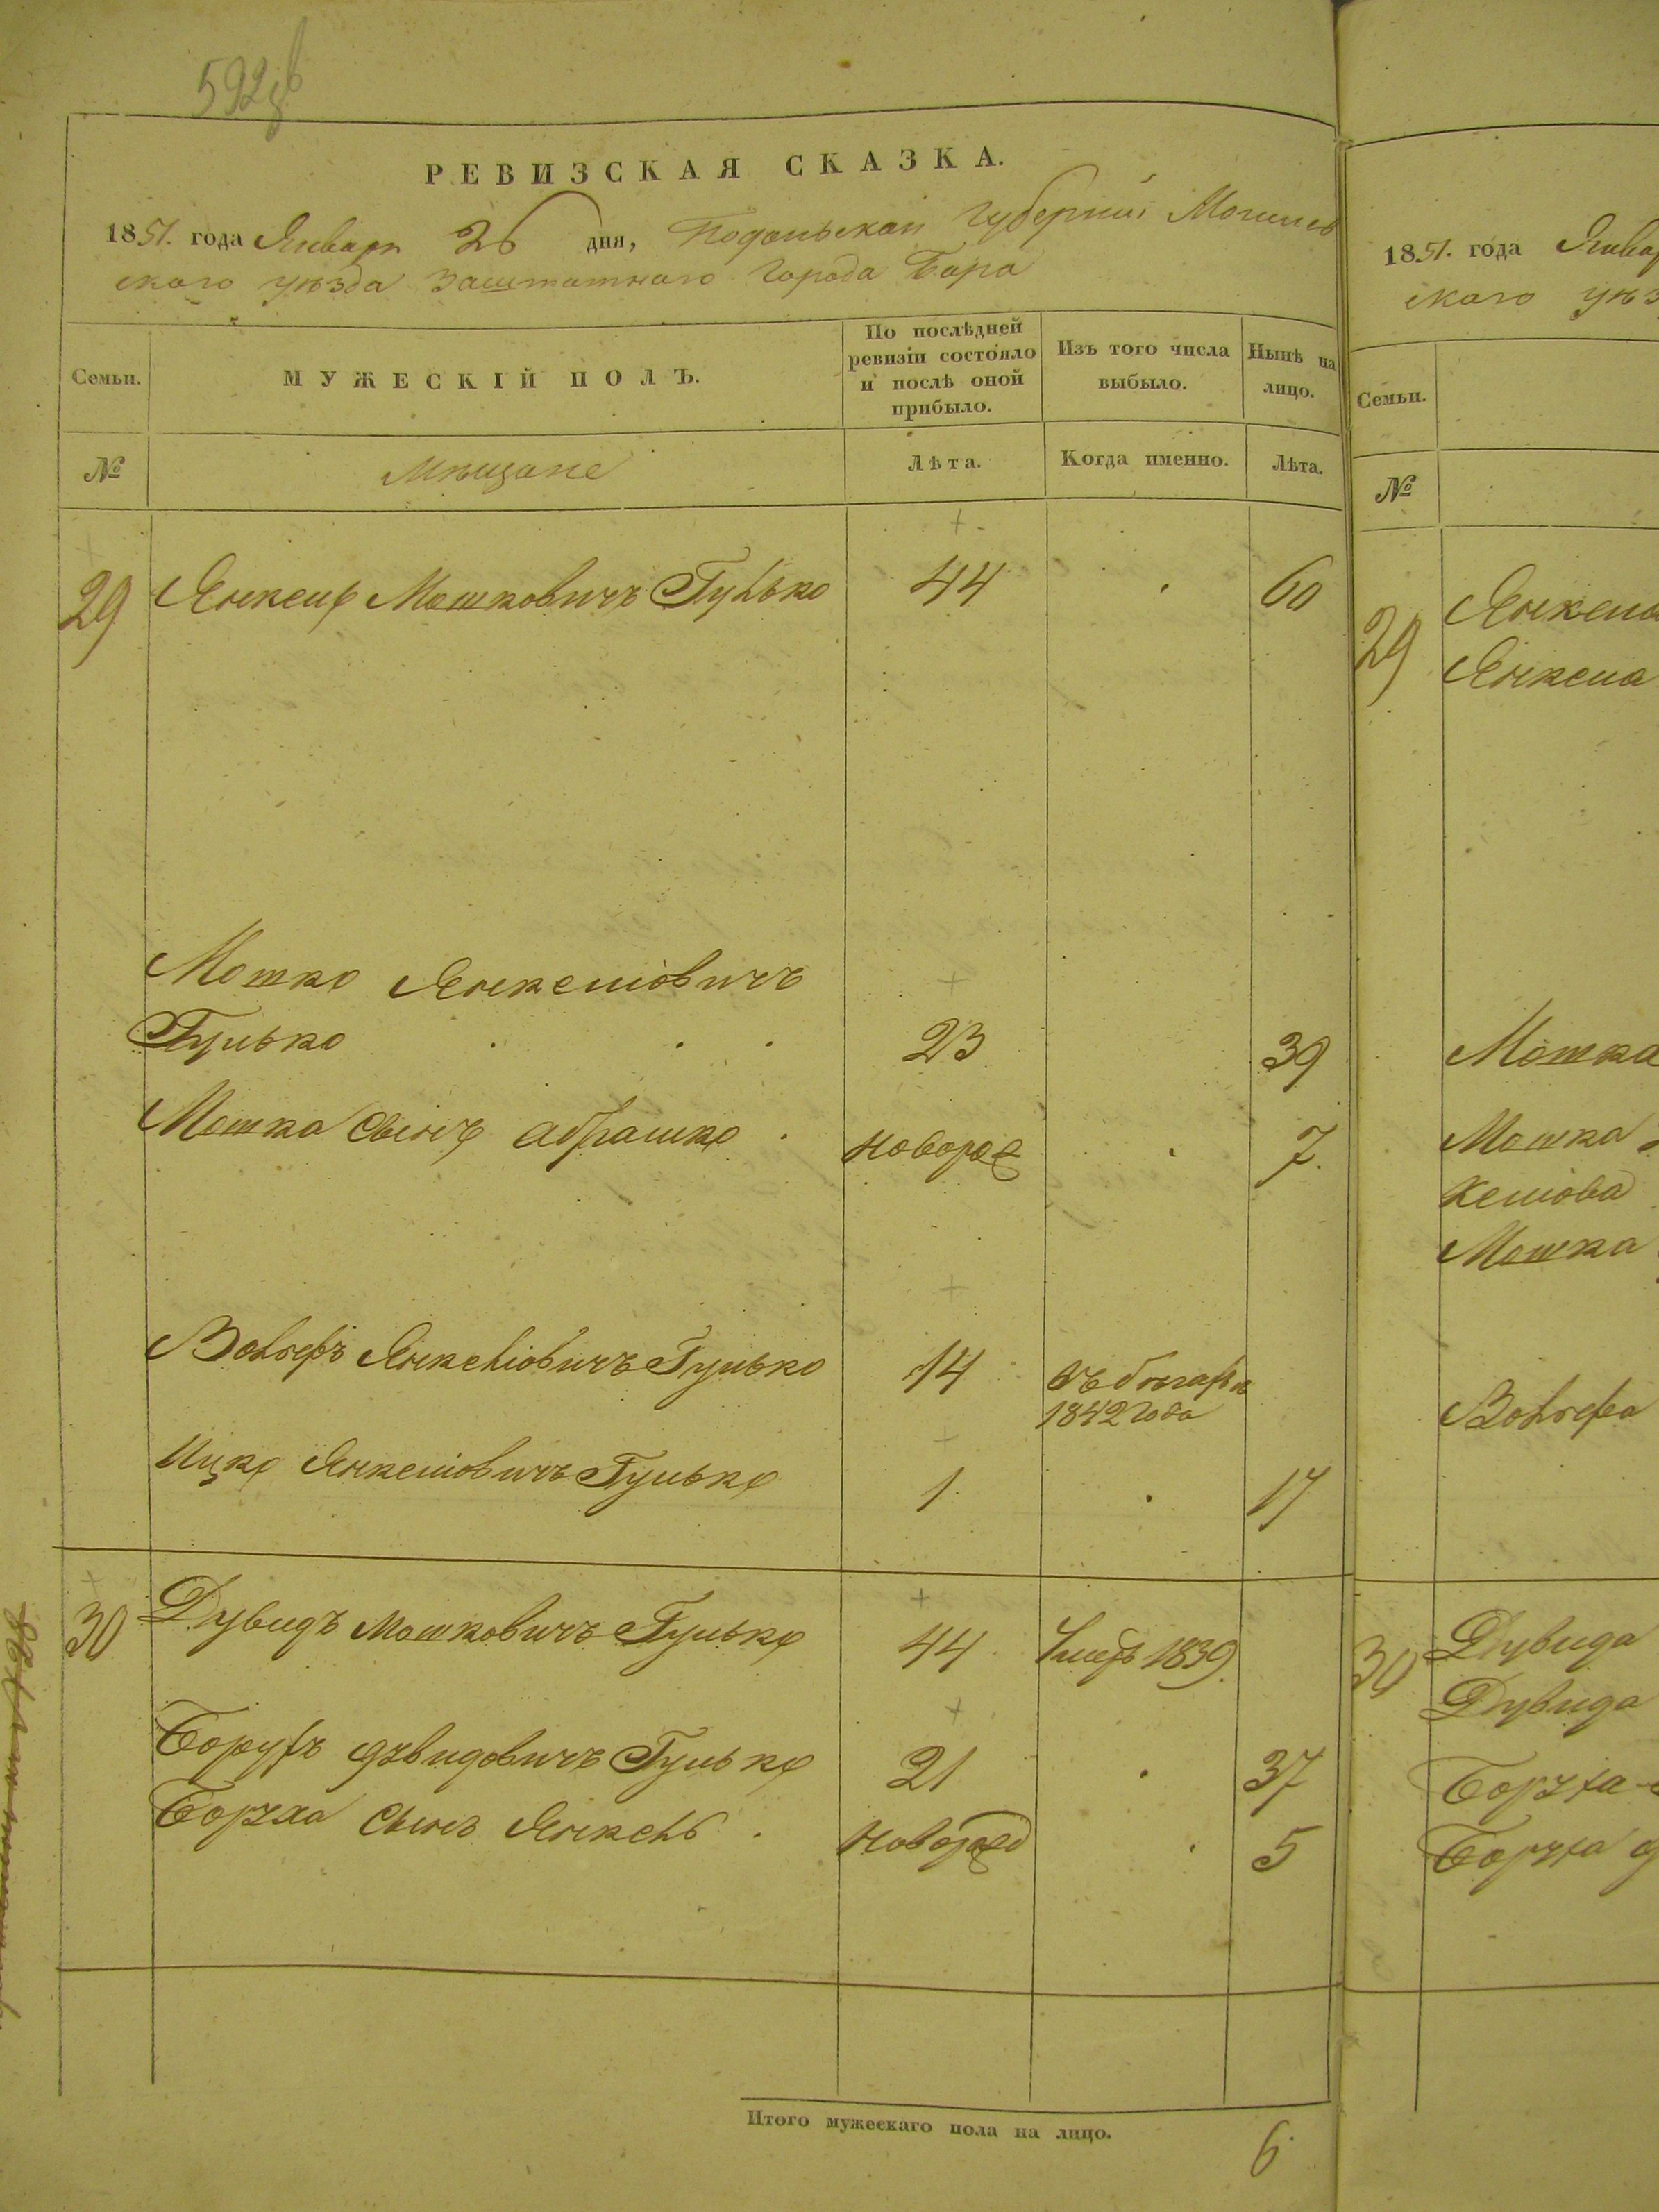 592
РЕВИЗСКАЯ СКАЗКА.
1851. года Января 26 дня, Подольской Губернии Могилев
скаго уѣзда Заштатнаго Города Бара
Семьи.
МУЖЕСКІЙ ПОЛЪ.
По послѣдней ревизіи состояло и послѣ оной прибыло.
Изъ того числа выбыло.
Нынѣ на лицо.
№
Мѣщане
Лѣта.
Когда именно.
Лѣта.
29 Янкель Мошковичъ Гулько 44 60
Мошко Янкеліовичъ
Гулько 23 39
Мошка Сынъ Абрашко новорож 7.
Вольфъ Янкеліовичъ Гулько 14 въ бѣгахъ
1842 Года
Ицко Янкеліовичъ Гулько 1. 17
30 Дувидъ Мошковичъ Гулько 44 Умеръ 1839.
Борухъ Дувидовичъ Гулько 21 37
Боруха Сынъ Янкель новорожд 5
Итого мужескаго пола на лицо.
6
1851. года Январ
скаго уѣз
Семьи.
№
29 Янкеля
Янкеля
Мошка
Мошка
келіова
Мошка
Вольфа
30 Дувида
Дувида
Боруха
Боруха